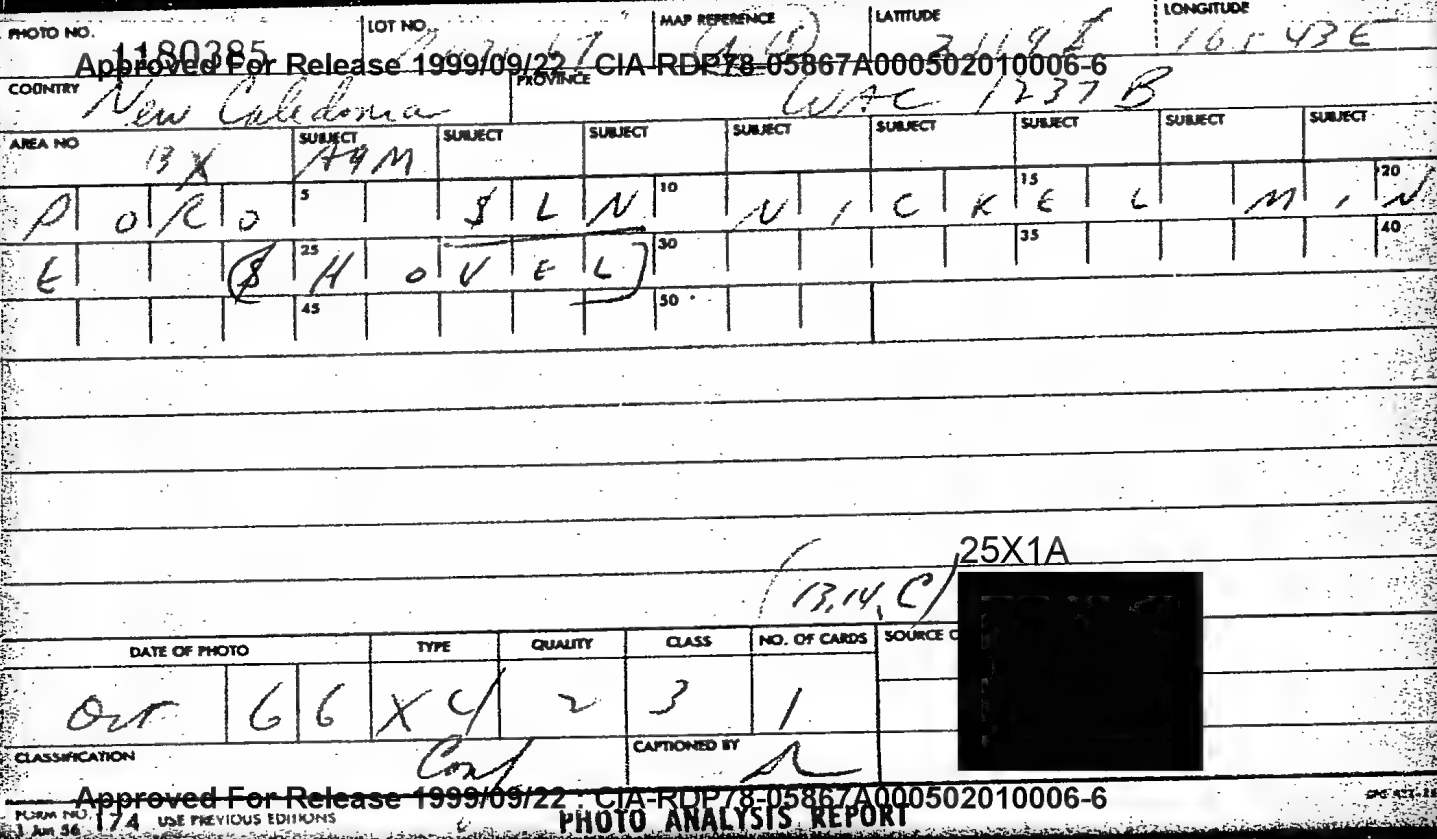 PHOTO NO. LOT NO. MAP REFERENCE LATITUDE LONGITUDE
1180385 165 43 E
Approved For Release 1999/09/22 : CIA-RDP78-05867A000502010006-6
COUNTRY New Caledonia PROVINCE WAC 1237 B
AREA NO SUBJECT SUBJECT SUBJECT SUBJECT SUBJECT SUBJECT SUBJECT SUBJECT
13X A9M
5 10 15 20
PORO SLN NICKEL MIN
25 30 35 40
E (SHOVEL)
45 50
25X1A
(13,14,C)
DATE OF PHOTO TYPE QUALITY CLASS NO. OF CARDS SOURCE C
Oct 66 X4 2 3 1
CLASSIFICATION Conf CAPTIONED BY
Approved For Release 1999/09/22 : CIA-RDP78-05867A000502010006-6
FORM NO. 174 USE PREVIOUS EDITIONS PHOTO ANALYSIS REPORT
1 Jun 56